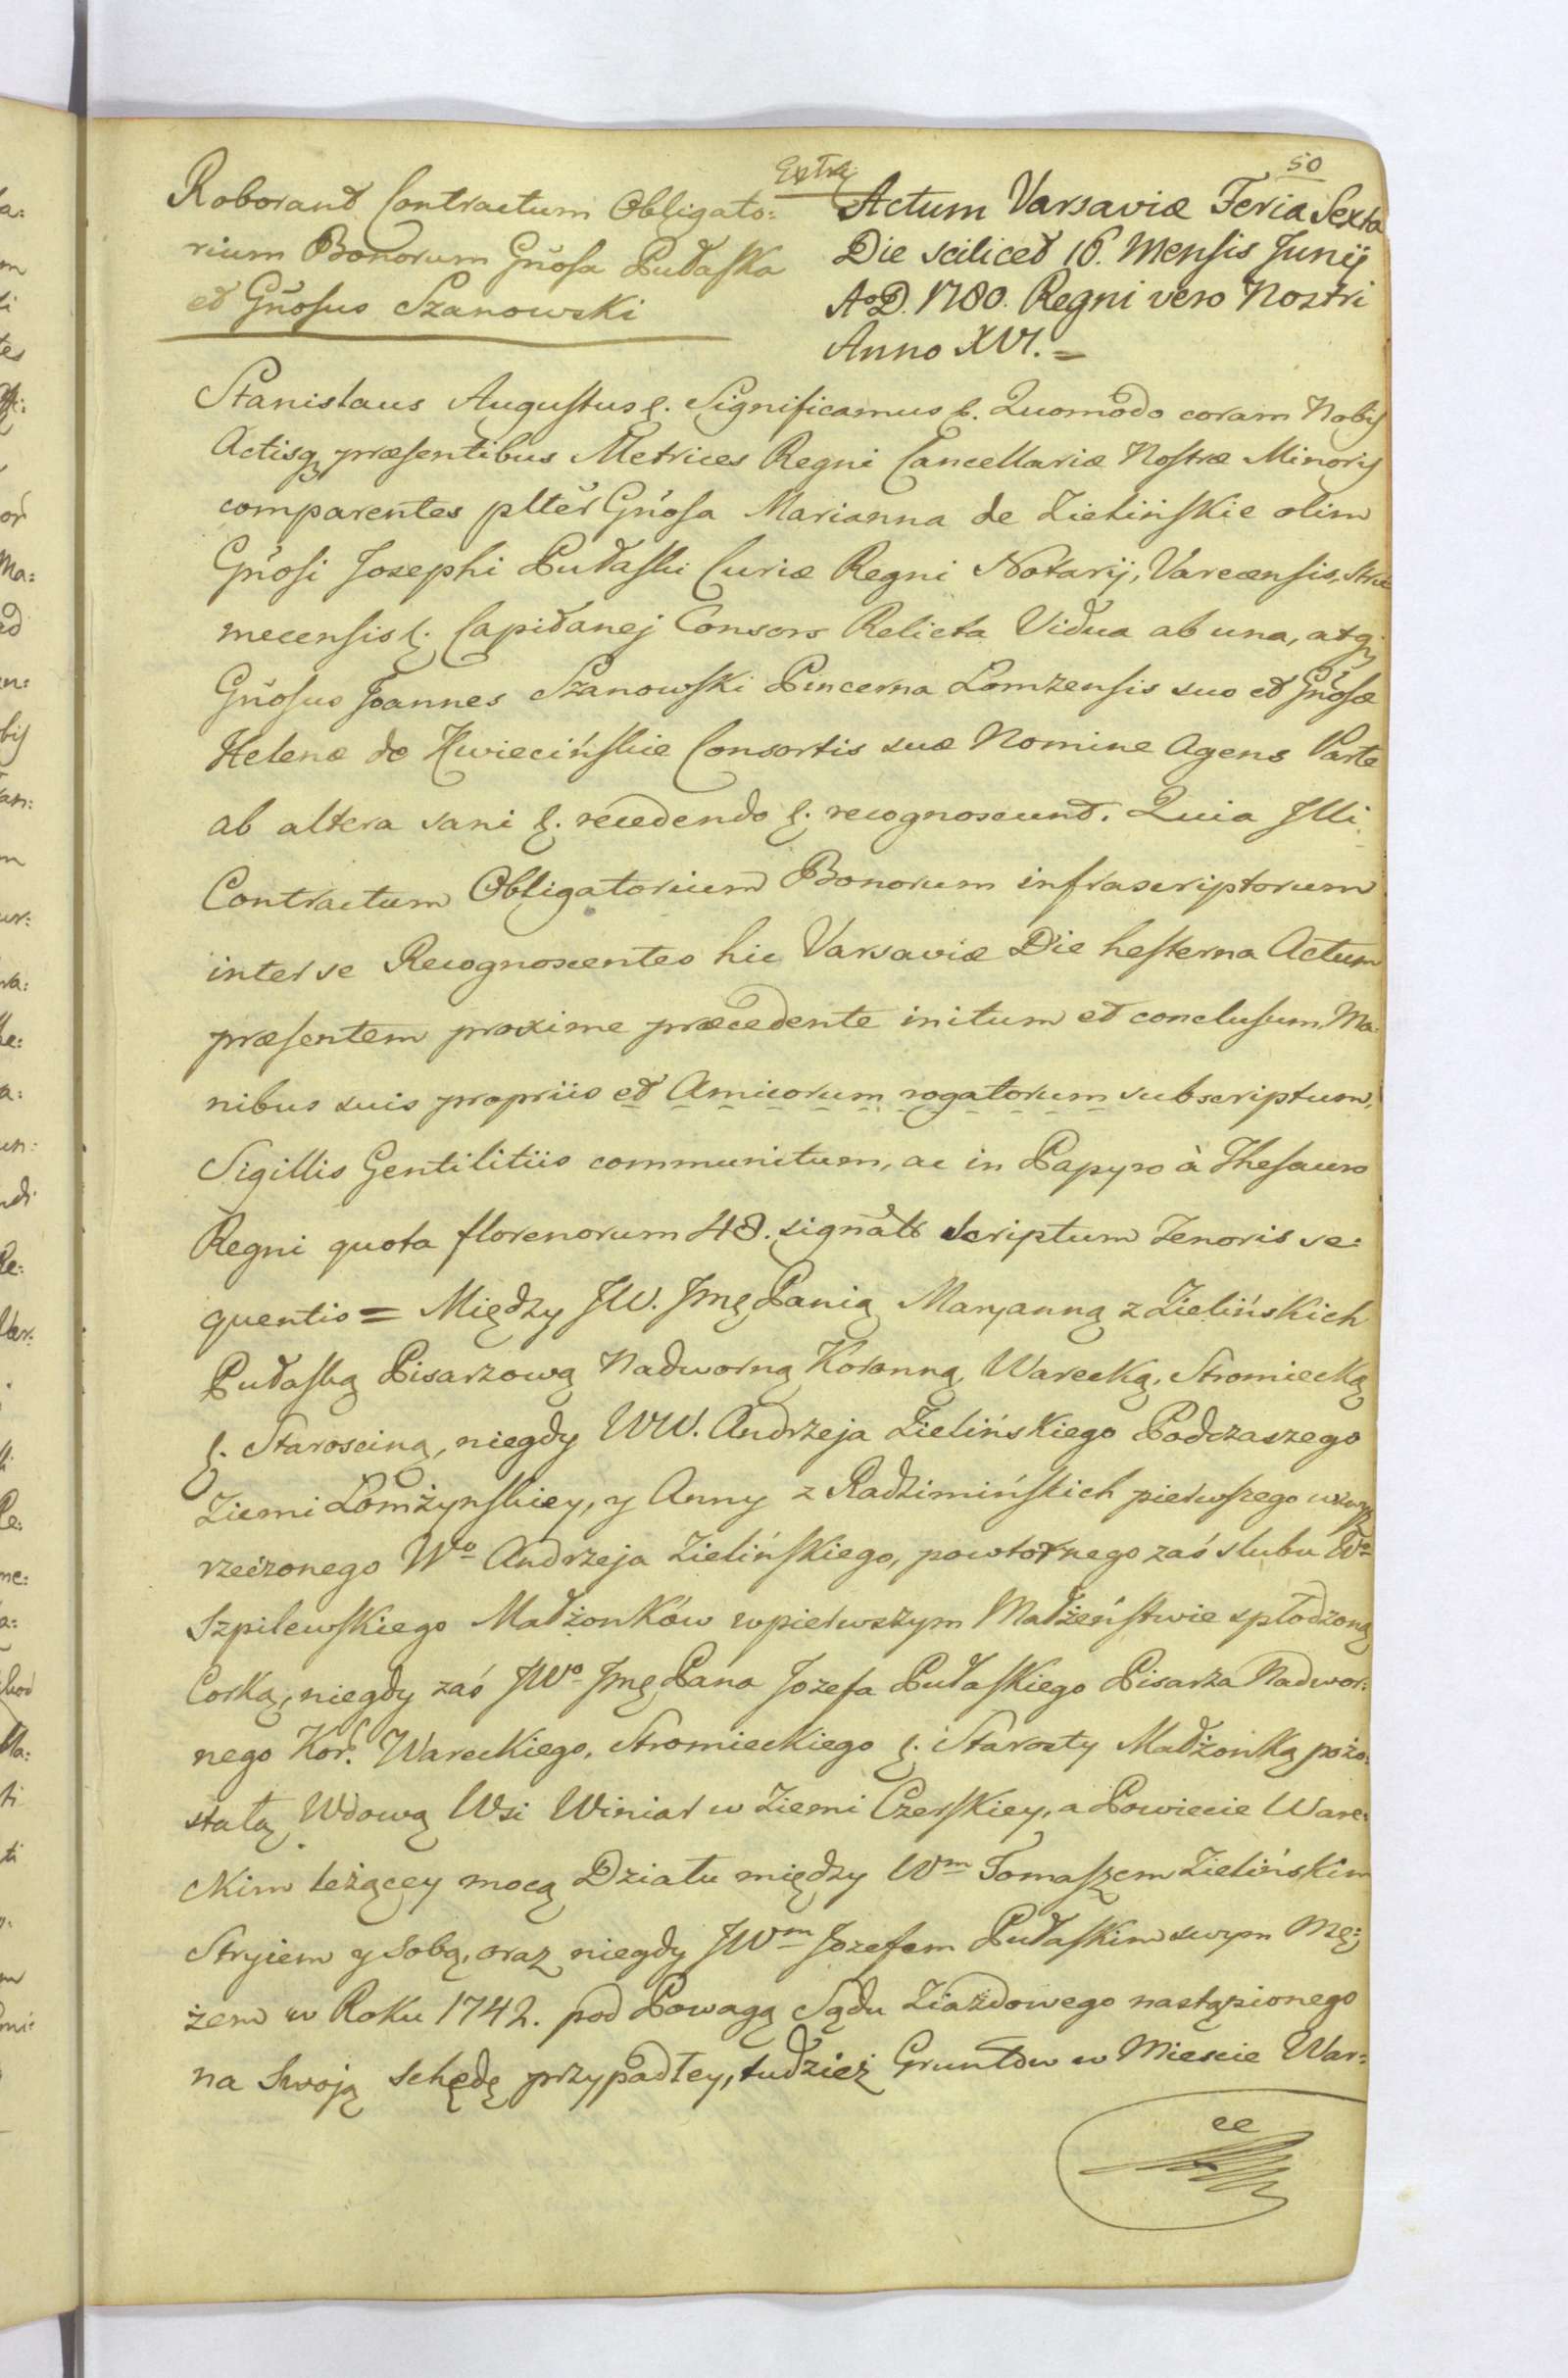 50
Extr.
Roborant Contractum Obligato:
rium Bonorum Gńosa Pułaska
et Gńosus Szanowski
Actum Varsaviæ Feria Sexta
Die scilicet 16. Mensis Junij
AoD. 1780. Regni vero Nostri
Anno XVI. =
Stanislaus Augustus &. Significamus &. Quomodo coram Nobis
Actisq præsentibus Metrices Regni Cancellariæ Nostræ Minoris
comparentes plter Gńosa Marianna de Zielińskie olim
Gńosi Josephi Pułaski Curiæ Regni Notarij, Varecensis, Stro
mecensis &. Capitanej Consors Relicta Vidua ab una, atq
Gńosus Joannes Szanowski Pincerna Lomzensis suo et Gńosæ
Helenæ de Kwiecińskie Consortis suæ Nomine Agens Parte
ab altera sani &. recedendo &. recognoscunt. Quia Illi
Contractum Obligatorium Bonorum infrascriptorum
inter se Recognoscentes hic Varsaviæ Die hesterna Actum
præsentem proxime præcedente initum et conclusum Ma:
nibus suis propriis et Amicorum rogatorum subscriptum,
Sigillis Gentilitiis communitum, ac in Papyro à Thesauro
Regni quota florenorum 48. signata scriptum Tenoris se:
quentis = Między JW. Jmę Panią Maryanną z Zielińskich
Pułaską Pisarzową Nadworną Koronną, Warecką, Stromiecką
&. Starosciną, niegdy WW. Andrzeja Zielińskiego Podczaszego
Ziemi Łomżynskiey, y Anny z Radzimińskich pierwszego
rzeczonego Wo Andrzeja Zielińskiego, powtornego zaś slubu Wo
Szpilewskiego Małżonków wpierwszym Małżeństwie spłodzoną
Corką, niegdy zaś JWo Jmę Pana Jozefa Pułaskiego Pisarza Nadwor:
nego Kor. Wareckiego, Stromieckiego &. Starosty Małżonką pozo:
stałą Wdową Wsi Winiar w Ziemi Czerskiey, a Powiecie Ware:
ckim leżącey mocą Działu między Wm Tomaszem Zielińskim
Stryiem y Sobą, oraz niegdy JWm Jozefem Pułaskim swym Mę:
żem w Roku 1742. pod Powagą Sądu Ziazdowego nastąpionego
na Swoją Schedę przypadłey, tudzież Gruntów w Miescie War:
ee